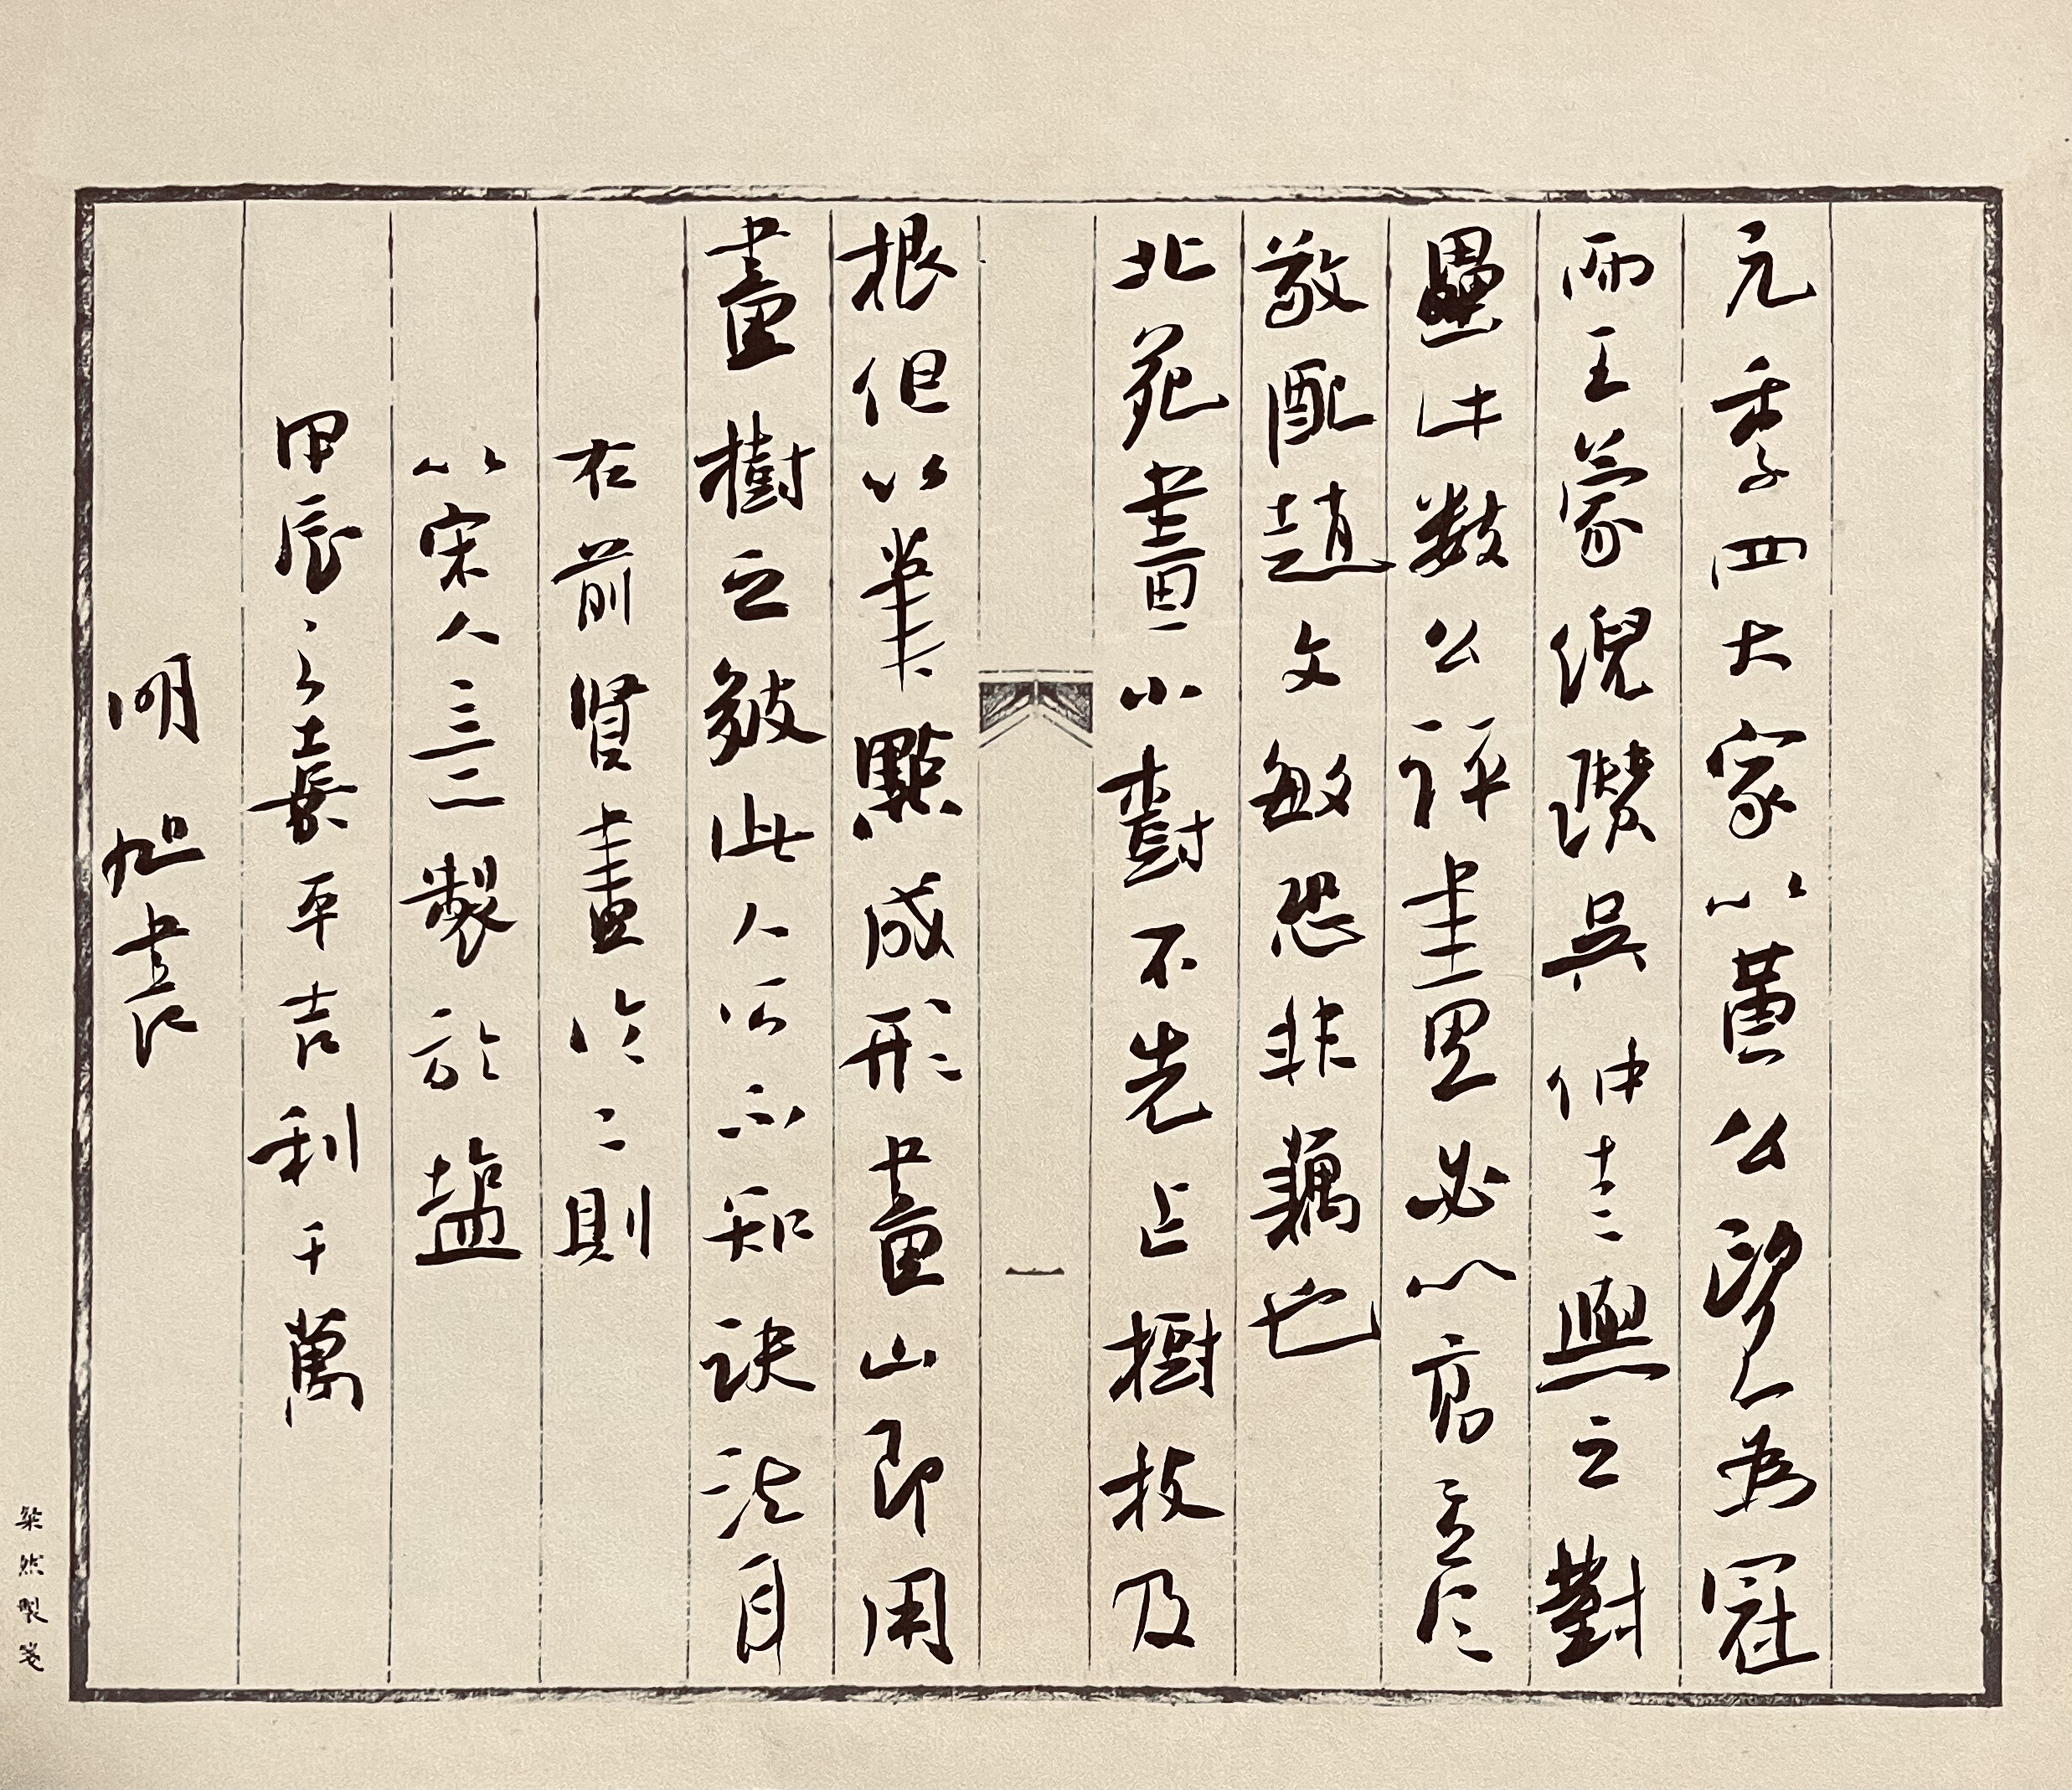 元季四大家以黃公望為冠
而王蒙倪瓚吳仲圭與之對
壘此数公評畫必以高彥
敬配趙文敏恐非藕也
北苑畫小樹不先作樹枝及
根但以筆點成形畫山即用
畫樹之皴此人所不知訣法自
右前賢畫論二則
以宋人三二製於盐
甲辰之嘉平吉利千萬
明旭書
粲然製箋